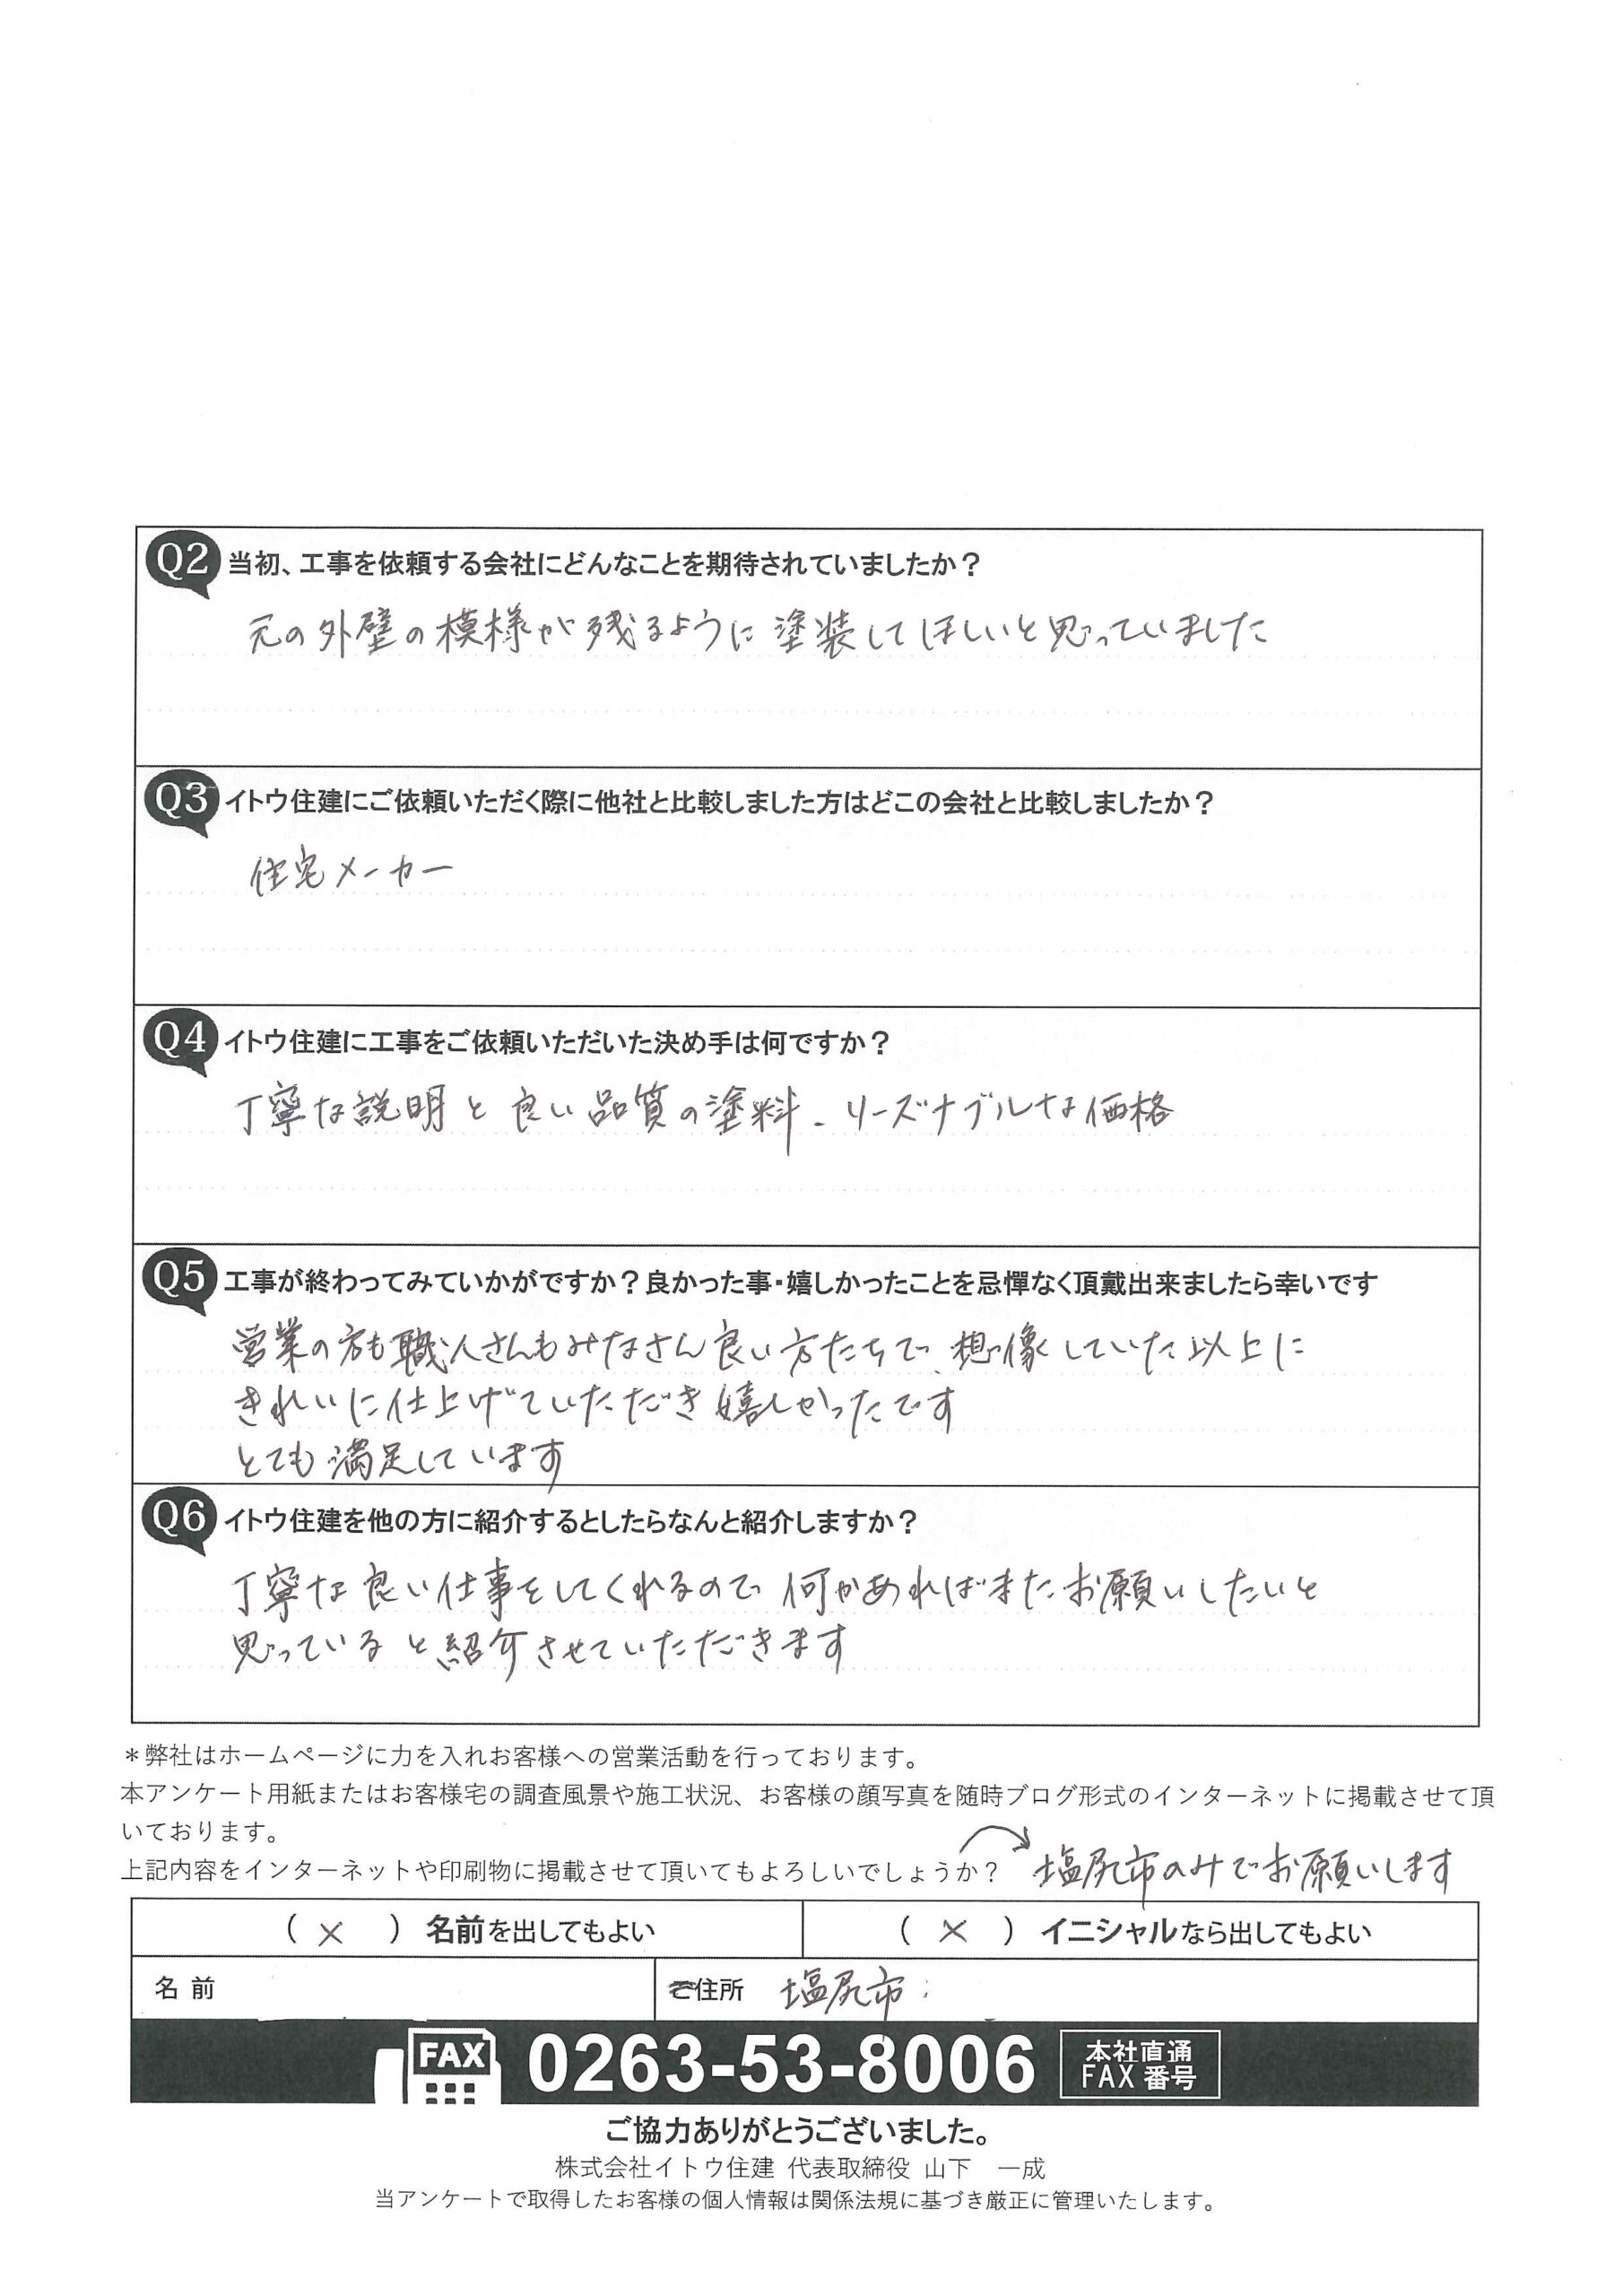 Q2 当初、工事を依頼する会社にどんなことを期待されていましたか？
元の外壁の模様が残るように塗装してほしいと思っていました
Q3 イトウ住建にご依頼いただく際に他社と比較しました方はどこの会社と比較しましたか？
住宅メーカー
Q4 イトウ住建に工事をご依頼いただいた決め手は何ですか？
丁寧な説明と良い品質の塗料、リーズナブルな価格
Q5 工事が終わってみていかがですか？良かった事・嬉しかったことを忌憚なく頂戴出来ましたら幸いです
営業の方も職人さんもみなさん良い方たちで、想像していた以上に
きれいに仕上げていただき嬉しかったです
とても満足しています
Q6 イトウ住建を他の方に紹介するとしたらなんと紹介しますか？
丁寧な良い仕事をしてくれるので何かあればまたお願いしたいと
思っていると紹介させていただきます
＊弊社はホームページに力を入れお客様への営業活動を行っております。
本アンケート用紙またはお客様宅の調査風景や施工状況、お客様の顔写真を随時ブログ形式のインターネットに掲載させて頂
いております。
上記内容をインターネットや印刷物に掲載させて頂いてもよろしいでしょうか？ 塩尻市のみでお願いします
（ × ）名前を出してもよい （ × ）イニシャルなら出してもよい
名前 ご住所 塩尻市
FAX 0263-53-8006 本社直通
FAX 番号
ご協力ありがとうございました。
株式会社イトウ住建 代表取締役 山下 一成
当アンケートで取得したお客様の個人情報は関係法規に基づき厳正に管理いたします。